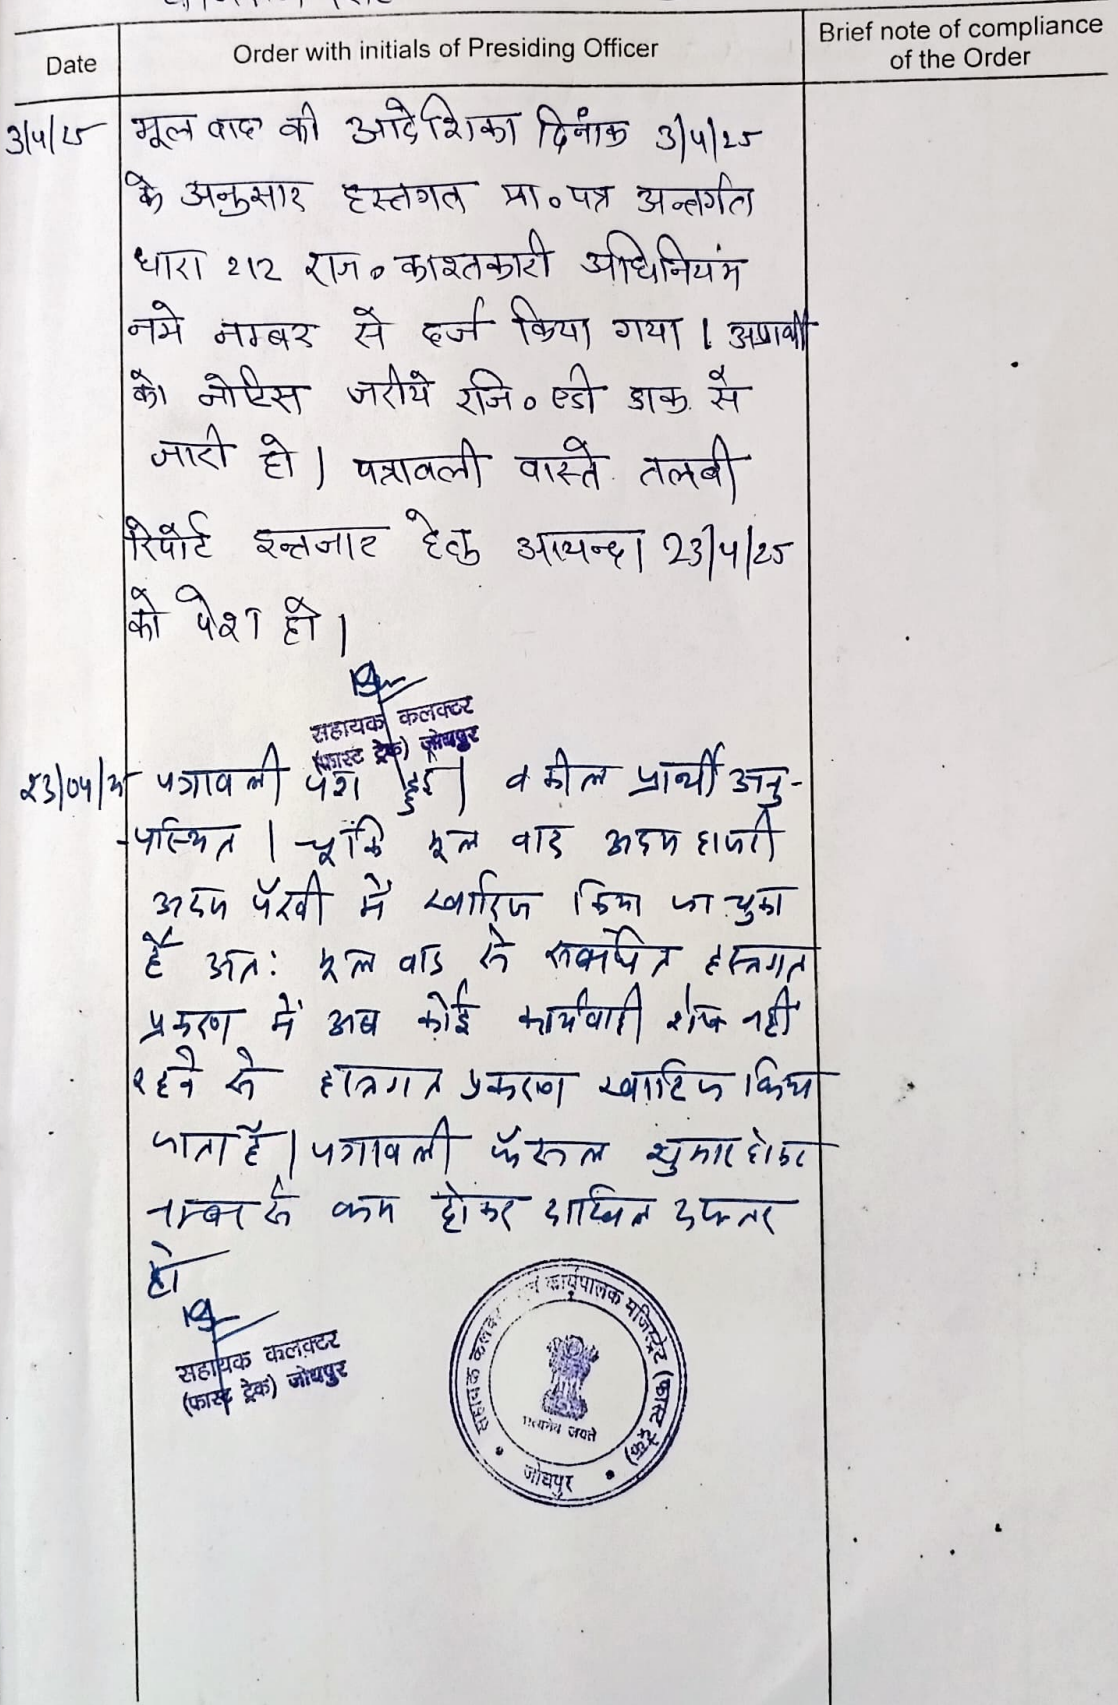 Date
Order with initials of Presiding Officer
Brief note of compliance
of the Order
3/4/25 मूल वाद की आदेशिका दिनांक 3/4/25
के अनुसार हस्तगत प्रा॰पत्र अन्तर्गत
धारा 212 राज॰ काश्तकारी अधिनियम
नये नम्बर से दर्ज किया गया । अप्रार्थी
को नोटिस जरीये रजि॰ एडी डाक से
जारी हो । पत्रावली वास्ते तलबी
रिपोर्ट इन्तजार हेतु आयन्दा 23/4/25
को पेश हो ।
सहायक कलक्टर
(फास्ट ट्रेक) जोधपुर
23/04/25 पत्रावली पेश हुई । वकील प्रार्थी अनु-
-पस्थित । चूंकि मूल वाद अदम हाजरी
अदम पैरवी में खारिज किया जा चुका
है अतः मूल वाद से सम्बंधित हस्तगत
प्रकरण में अब कोई कार्यवाही शेष नहीं
रहने से हस्तगत प्रकरण खारिज किया
जाता है । पत्रावली फैसल शुमार होकर
नम्बर से कम होकर दाखिल दफ्तर
हो
सहायक कलक्टर
(फास्ट ट्रेक) जोधपुर
सहायक कलक्टर एवं कार्यपालक मजिस्ट्रेट (फास्ट ट्रेक)
सत्यमेव जयते
जोधपुर